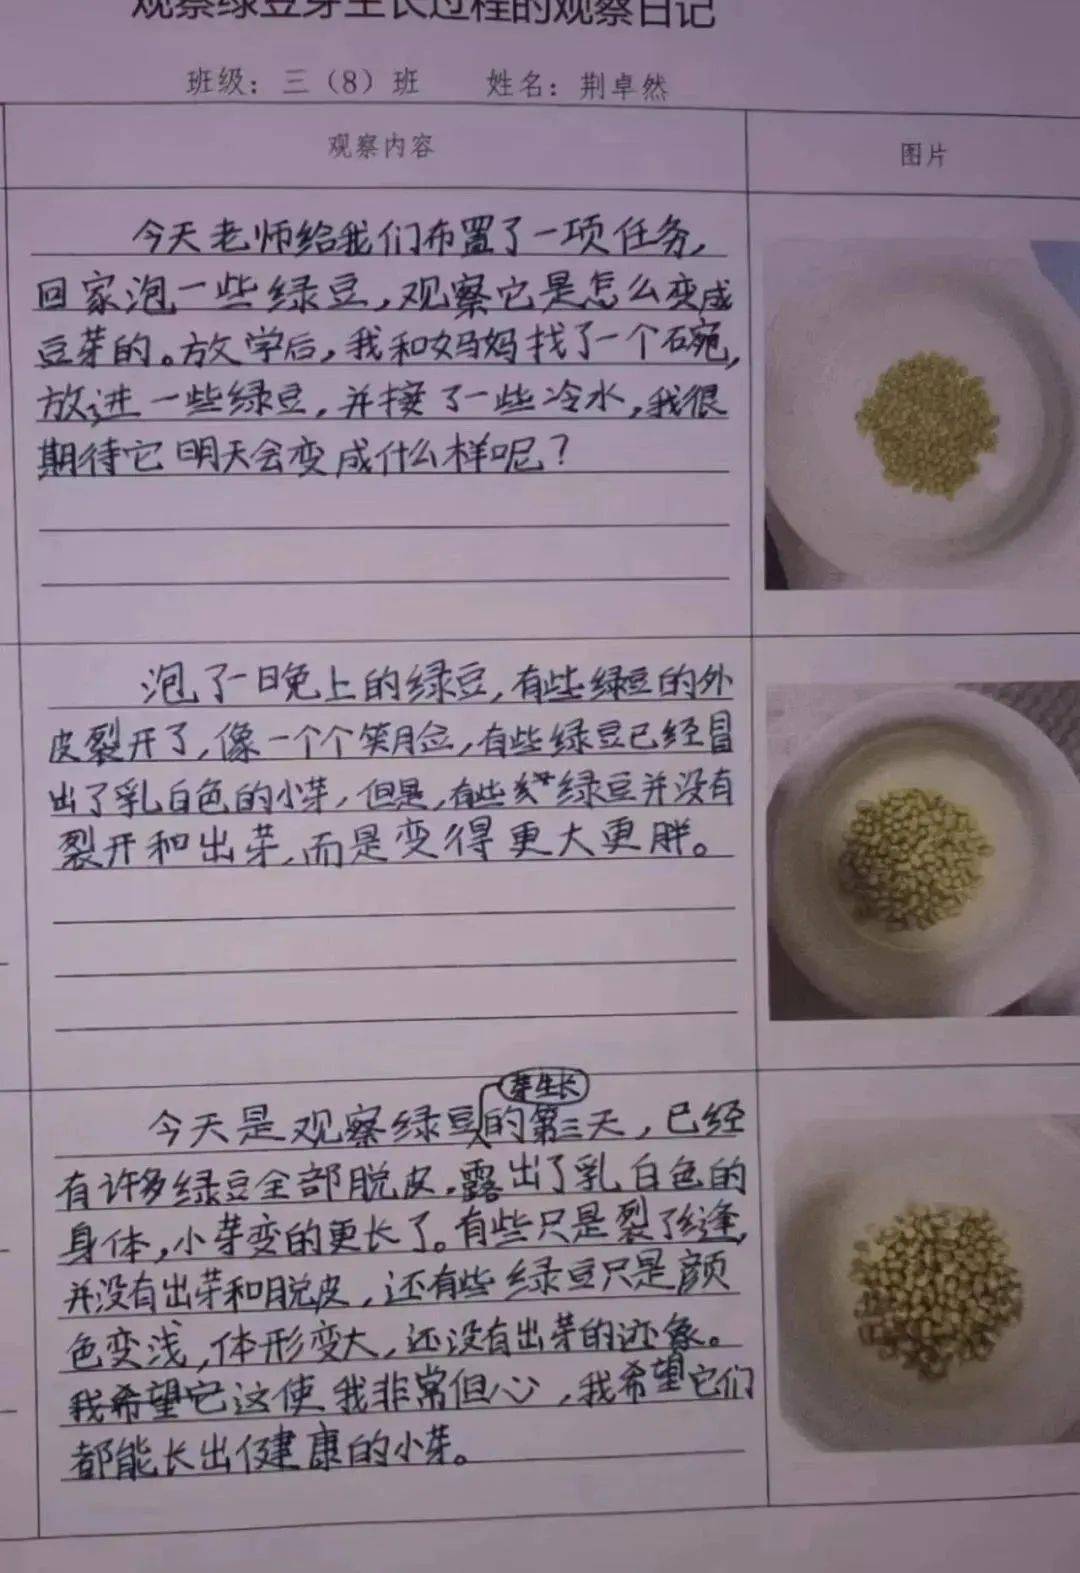 观察绿豆芽生长过程的观察日记
班级：三（8）班 姓名：荆卓然
观察内容 图片
今天老师给我们布置了一项任务，
回家泡一些绿豆，观察它是怎么变成
豆芽的。放学后，我和妈妈找了一个碗，
放进一些绿豆，并接了一些冷水，我很
期待它明天会变成什么样呢？
泡了一晚上的绿豆，有些绿豆的外
皮裂开了，像一个个笑脸，有些绿豆已经冒
出了乳白色的小芽，但是，有些绿豆并没有
裂开和出芽，而是变得更大更胖。
芽生长
今天是观察绿豆的第三天，已经
有许多绿豆全部脱皮，露出了乳白色的
身体，小芽变的更长了。有些只是裂了缝，
并没有出芽和脱皮，还有些绿豆只是颜
色变浅，体形变大，还没有出芽的迹象。
我希望它这使我非常但心，我希望它们
都能长出健康的小芽。